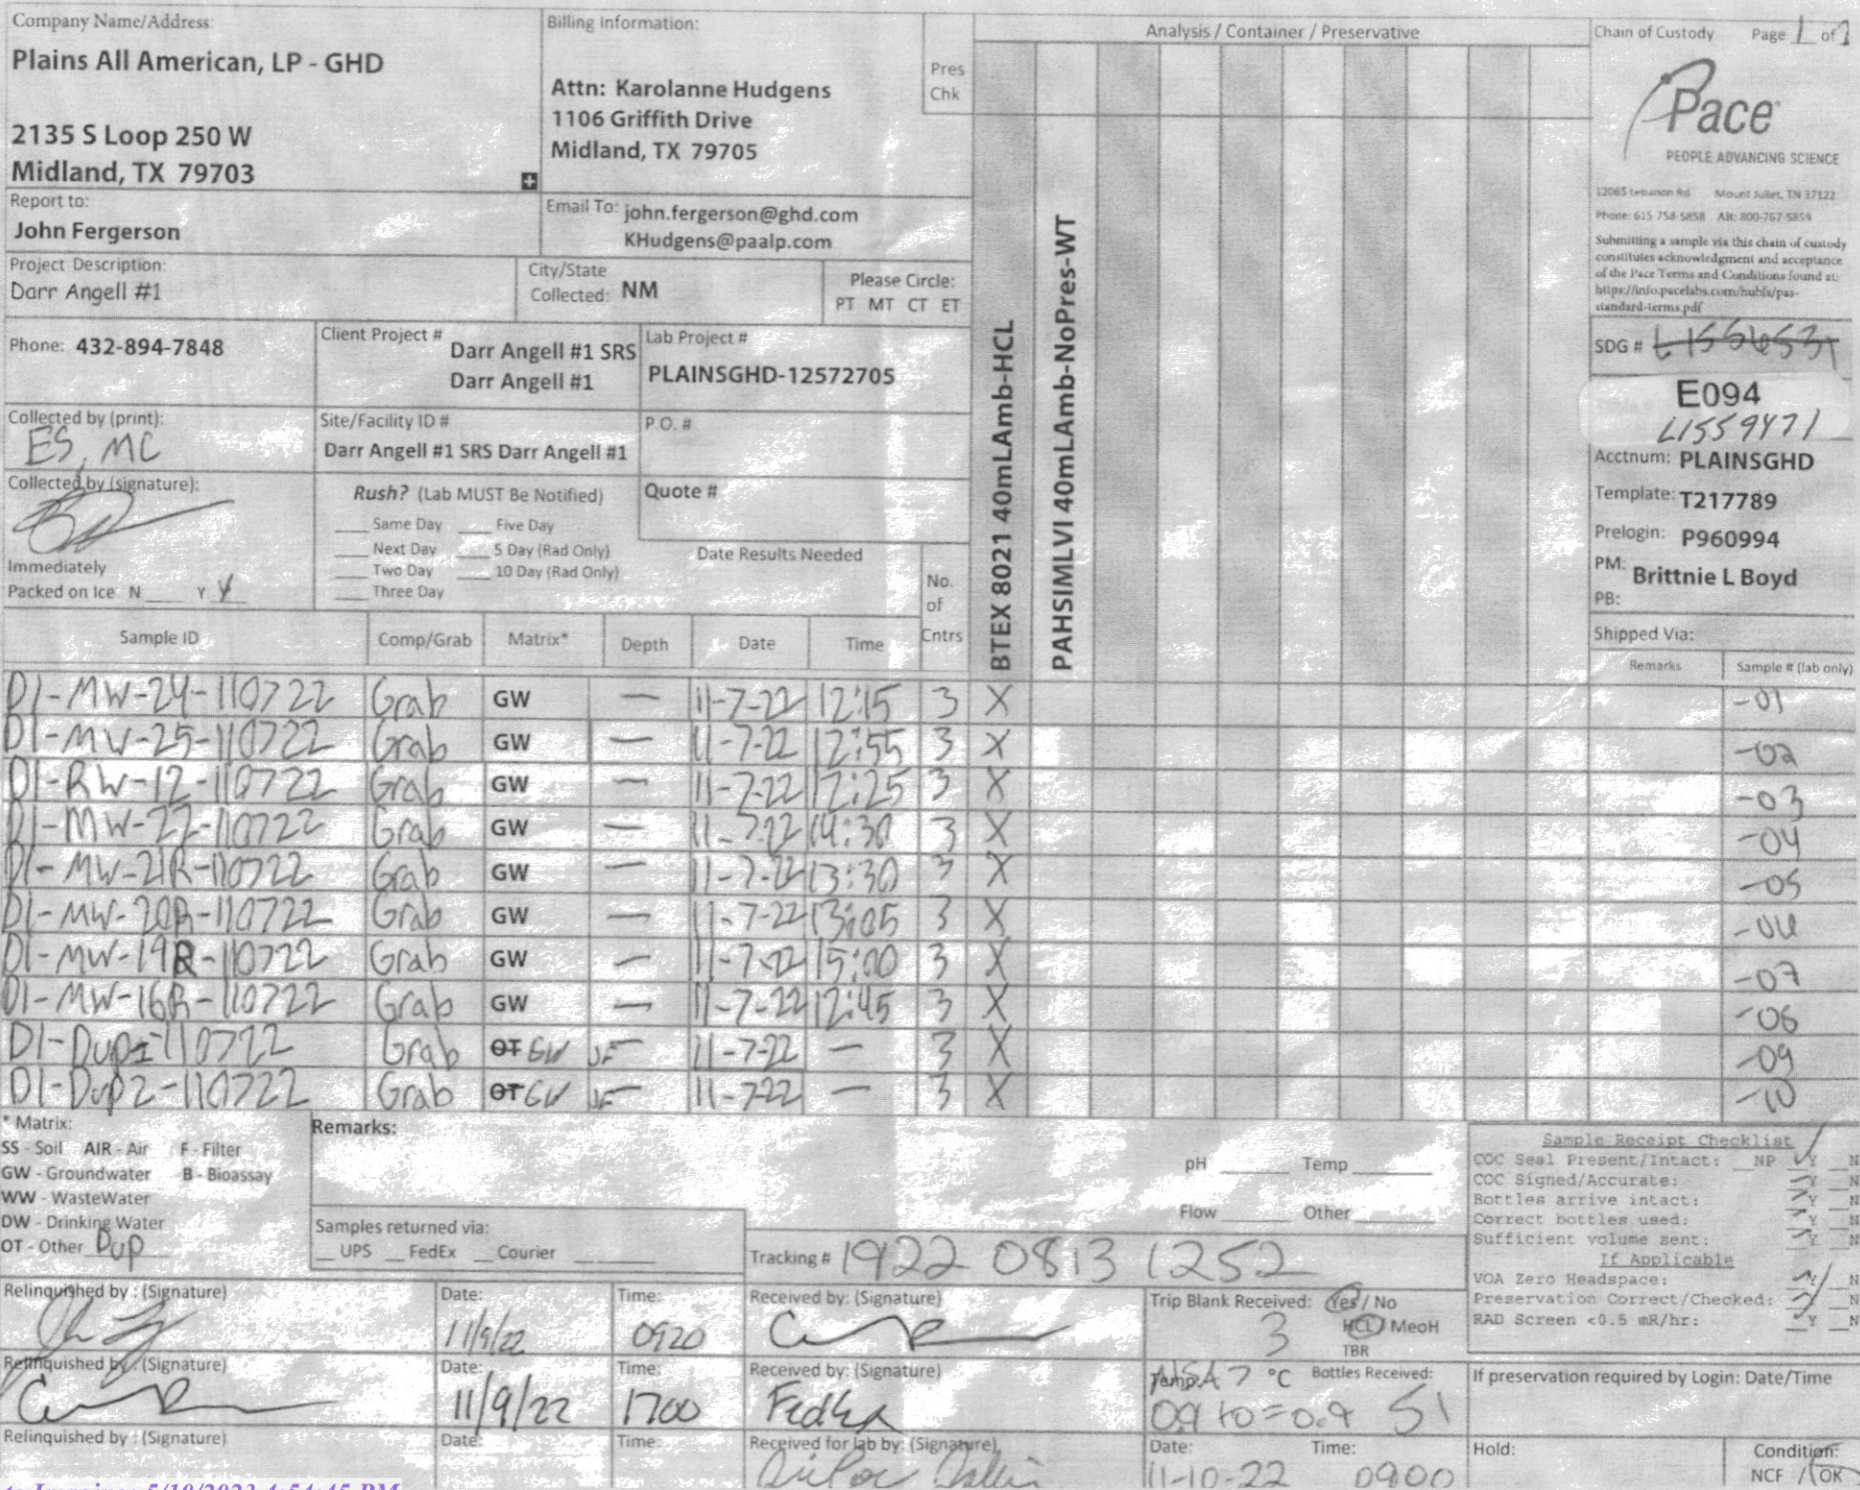 Company Name/Address:
Plains All American, LP - GHD
2135 S Loop 250 W
Midland, TX 79703
Billing Information:
Attn: Karolanne Hudgens
1106 Griffith Drive
Midland, TX 79705
Pres
Chk
Analysis / Container / Preservative
Chain of Custody Page 1 of
Pace
PEOPLE ADVANCING SCIENCE
12065 Lebanon Rd Mount Juliet, TN 37122
Phone: 615-758-5858 Alt: 800-767-5859
Submitting a sample via this chain of custody
constitutes acknowledgment and acceptance
of the Pace Terms and Conditions found at:
https://info.pacelabs.com/hubfs/pas-
standard-terms.pdf
Report to:
John Fergerson
Email To: john.fergerson@ghd.com
KHudgens@paalp.com
Project Description:
Darr Angell #1
City/State
Collected: NM
Please Circle:
PT MT CT ET
Phone: 432-894-7848
Client Project #
Darr Angell #1 SRS
Darr Angell #1
Lab Project #
PLAINSGHD-12572705
Collected by (print):
ES, MC
Site/Facility ID #
Darr Angell #1 SRS Darr Angell #1
P.O. #
Collected by (signature):
Immediately
Packed on Ice N ___ Y Y
Rush? (Lab MUST Be Notified)
___ Same Day ___ Five Day
___ Next Day ___ 5 Day (Rad Only)
___ Two Day ___ 10 Day (Rad Only)
___ Three Day
Quote #
Date Results Needed
No.
of
Cntrs
BTEX 8021 40mLAmb-HCL
PAHSIMLVI 40mLAmb-NoPres-WT
SDG #
E094
L1559471
Acctnum: PLAINSGHD
Template: T217789
Prelogin: P960994
PM: Brittnie L Boyd
PB:
Shipped Via:
Sample ID Comp/Grab Matrix* Depth Date Time Remarks Sample # (lab only)
D1-MW-24-110722 Grab GW — 11-7-22 12:15 3 X -01
D1-MW-25-110722 Grab GW — 11-7-22 12:55 3 X -02
D1-RW-12-110722 Grab GW — 11-7-22 12:25 3 X -03
D1-MW-22-110722 Grab GW — 11-7-22 14:30 3 X -04
D1-MW-21R-110722 Grab GW — 11-7-22 13:30 3 X -05
D1-MW-20R-110722 Grab GW — 11-7-22 13:05 3 X -06
D1-MW-19R-110722 Grab GW — 11-7-22 15:00 3 X -07
D1-MW-16R-110722 Grab GW — 11-7-22 12:45 3 X -08
D1-Dup1-110722 Grab OT GW JF — 11-7-22 — 3 X -09
D1-Dup2-110722 Grab OT GW JF — 11-7-22 — 3 X -10
* Matrix:
SS - Soil AIR - Air F - Filter
GW - Groundwater B - Bioassay
WW - WasteWater
DW - Drinking Water
OT - Other Dup
Remarks:
pH ___ Temp ___
Flow ___ Other ___
Samples returned via:
__ UPS __ FedEx __ Courier ___
Tracking # 1922 0813 1252
Sample Receipt Checklist
COC Seal Present/Intact: __ NP __ Y __ N
COC Signed/Accurate: __ Y __ N
Bottles arrive intact: __ Y __ N
Correct bottles used: __ Y __ N
Sufficient volume sent: __ Y __ N
If Applicable
VOA Zero Headspace: __ Y __ N
Preservation Correct/Checked: __ Y __ N
RAD Screen <0.5 mR/hr: __ Y __ N
Relinquished by : (Signature)
Date: 11/9/22
Time: 0920
Received by: (Signature)
Trip Blank Received: Yes / No
3 HCL / MeoH
TBR
Relinquished by : (Signature)
Date: 11/9/22
Time: 1700
Received by: (Signature)
FedEx
°C Bottles Received:
0.9 +0=0.9 51
If preservation required by Login: Date/Time
Relinquished by : (Signature)
Date:
Time:
Received for lab by: (Signature)
Date: 11-10-22
Time: 0900
Hold:
Condition:
NCF / OK
5/10/2023 4:54:45 PM